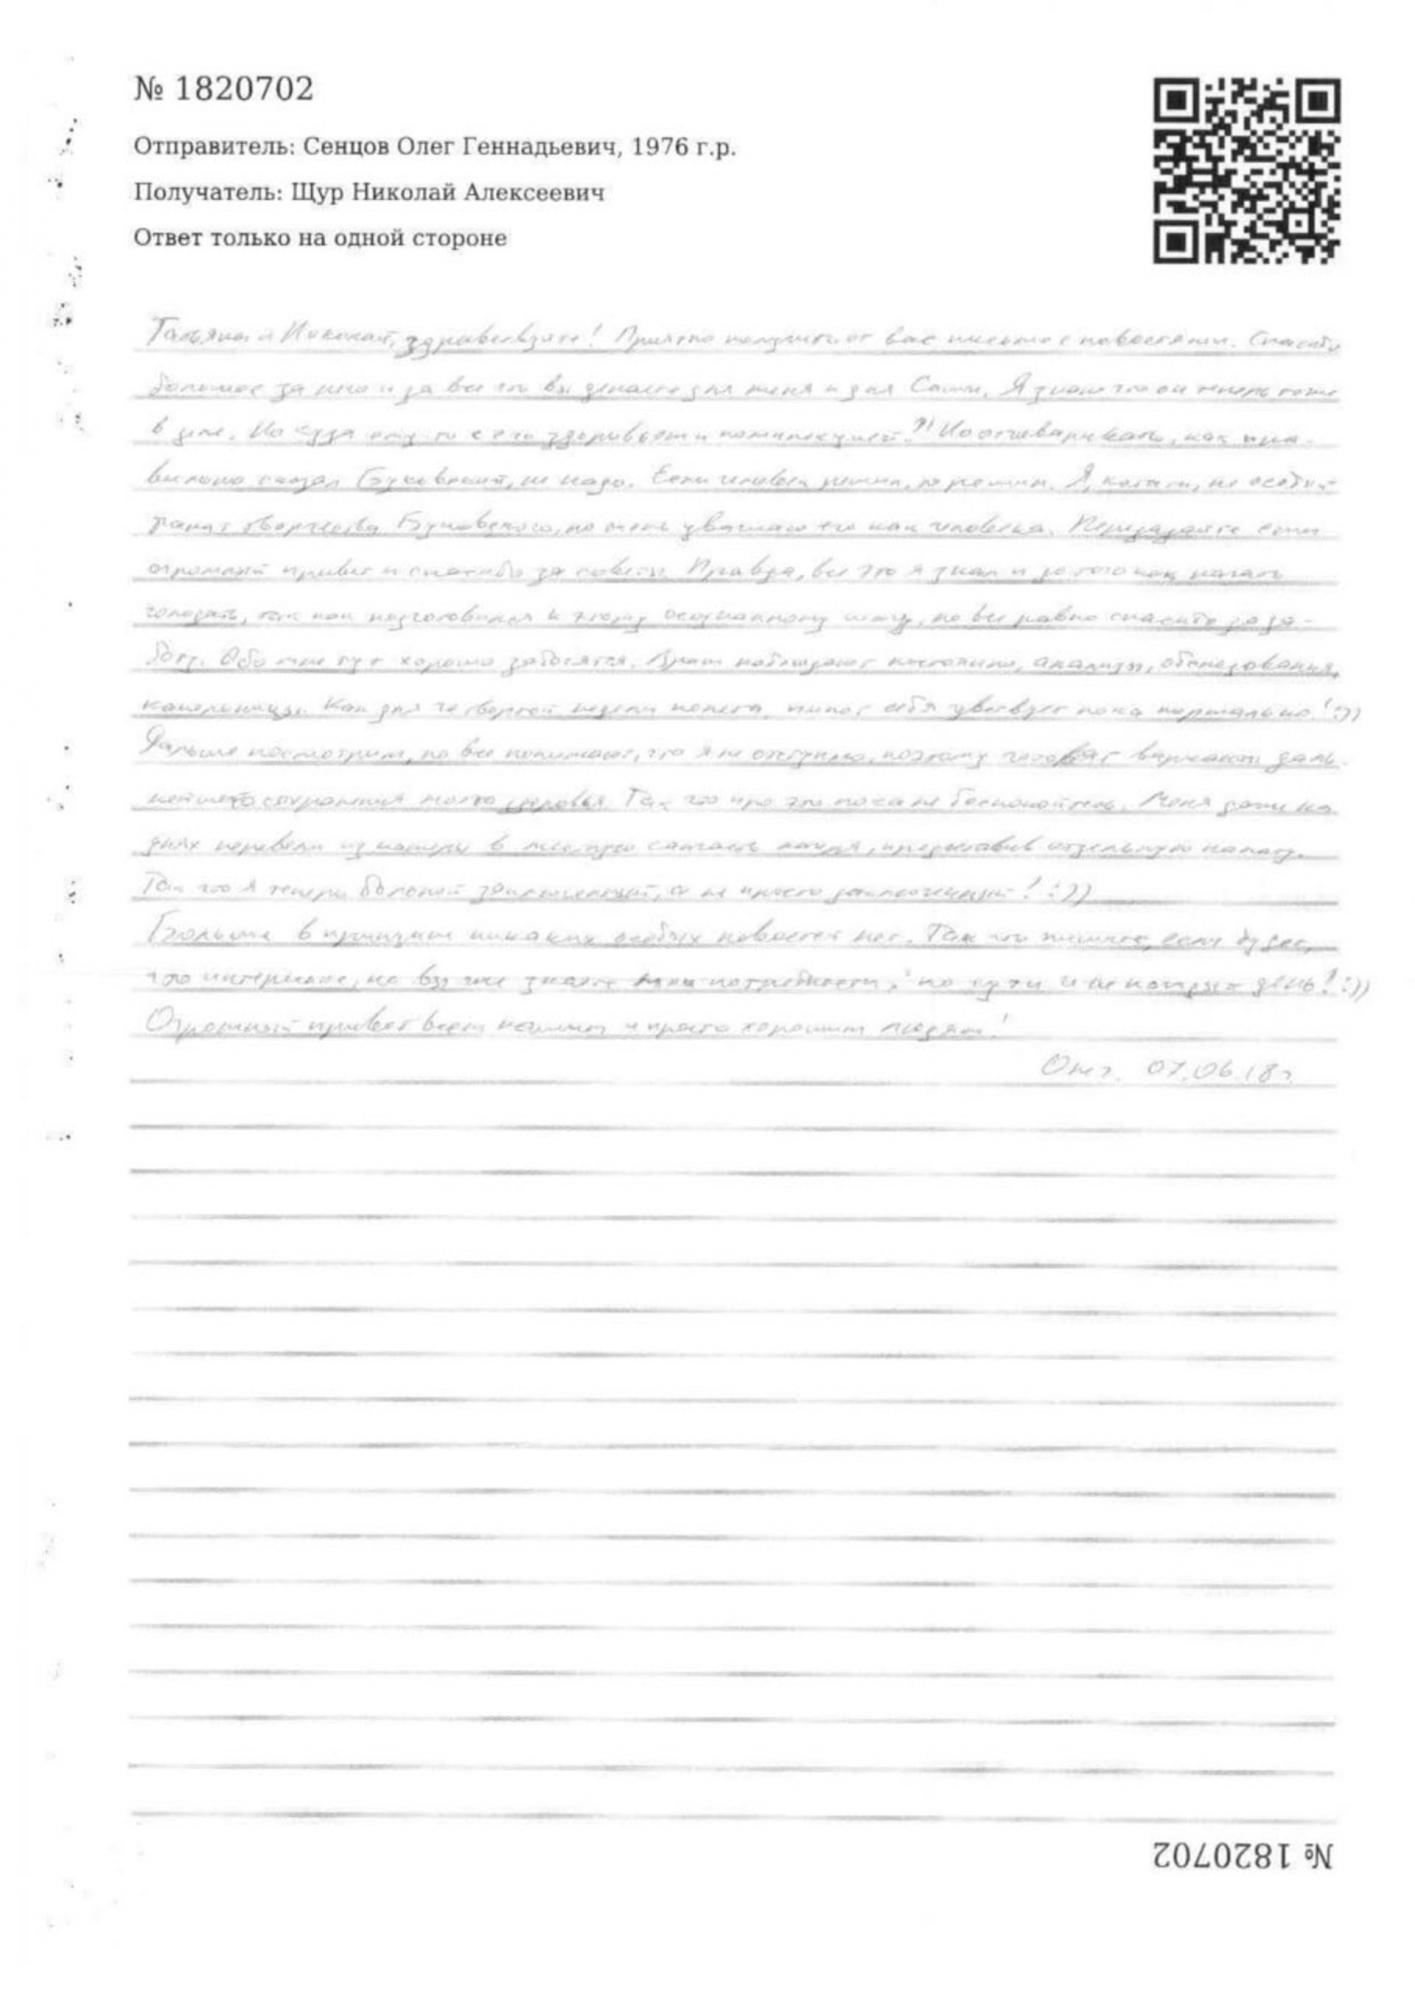 № 1820702
Отправитель: Сенцов Олег Геннадьевич, 1976 г.р.
Получатель: Щур Николай Алексеевич
Ответ только на одной стороне
Татьяна и Николай, здравствуйте! Приятно получить от вас письмо с новостями. Спасибо
большое за него и за все что вы делаете для меня и для Саши. Я знаю что он теперь тоже
в деле. Но куда ему то с его здоровьем и комплекцией?! Но отговаривать, как пра-
вильно сказал Буковский, не надо. Если человек решил, то решил. Я, кстати, не особый
фанат творчества Буковского, но очень уважаю его как человека. Передавайте ему
огромный привет и спасибо за советы. Правда, все это я знал и до того как начать
голодать, так как подготовился к этому осознанному шагу, но все равно спасибо за за-
боту. Обо мне тут хорошо заботятся. Врачи наблюдают постоянно, анализы, обследования,
капельницы. Как для четвертой недели полета, пилот себя чувствует пока нормально! :))
Дальше посмотрим, но все понимают, что я не отступлю, поэтому готовят варианты даль-
нейшего сохранения моего здоровья. Так что про это пока не беспокойтесь. Меня даже на
днях перевели из камеры в местную санчасть лагеря, предоставив отдельную палату.
Так что я теперь больной заключенный, а не просто заключенный! :))
Больше в принципе никаких особых новостей нет. Так что пишите, если будет,
что интересное, но вы уже знаете мои потребности: по сути и не каждый день! :))
Огромный привет всем нашим и просто хорошим людям!
Олег. 07.06.18г.
№ 1820702